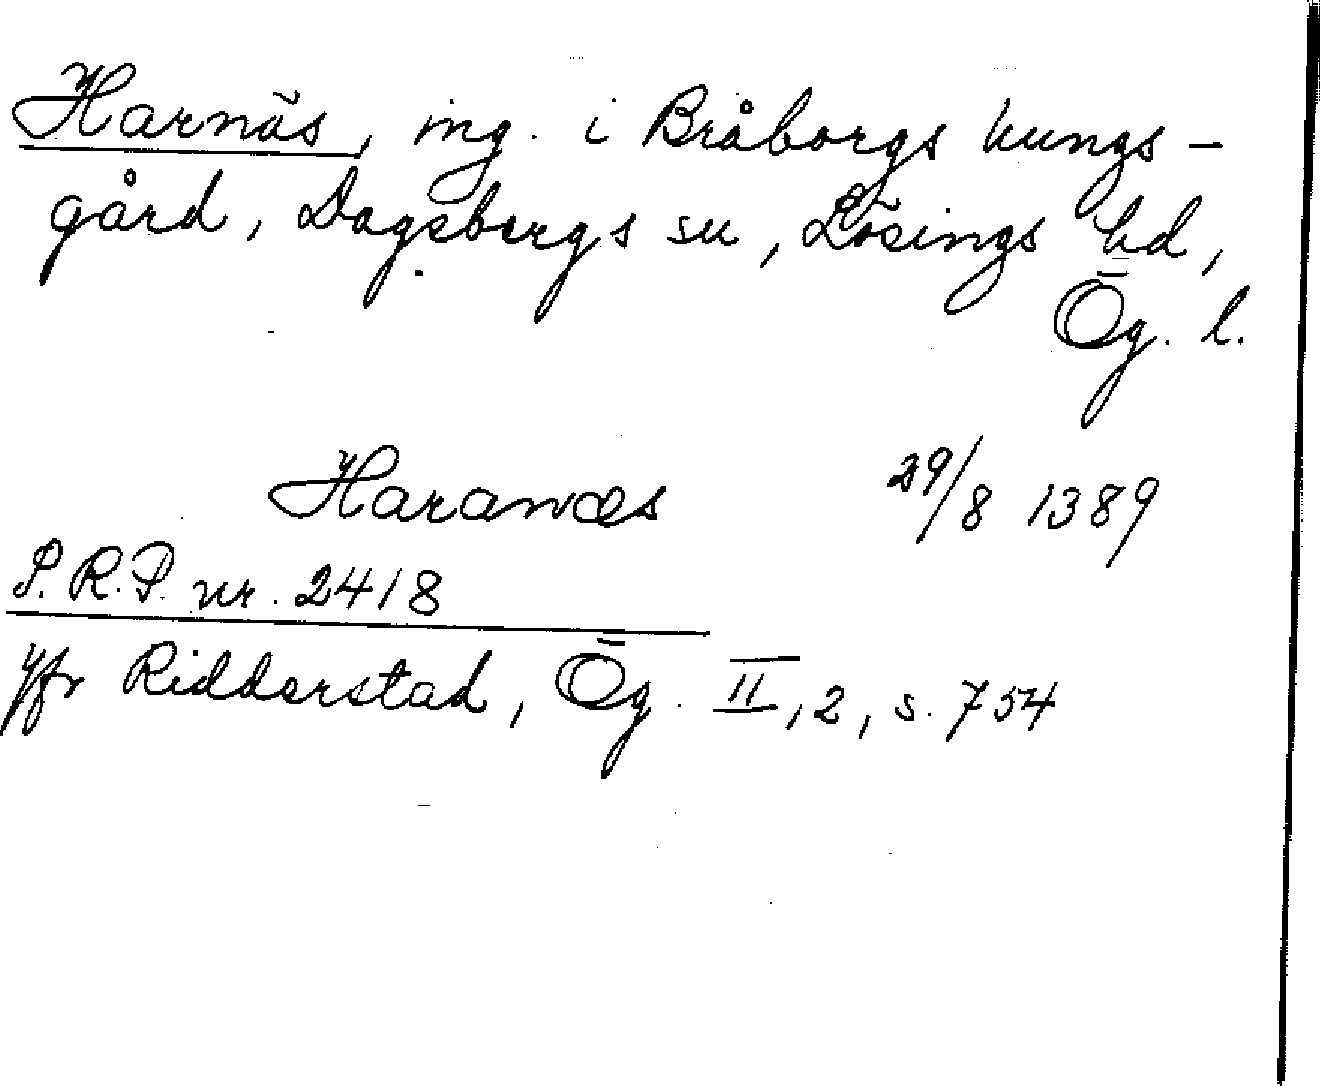 Harnäs, ing. i Bråborgs kungs-
gård, Dagsbergs sn, Lösings hd,
Ög. l.
Haranæs 29/8 1389
S.R.P. nr. 2418
Jfr Ridderstad, Ög. II, 2, s. 754